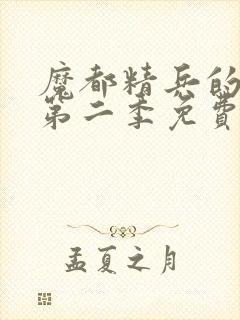 魔都精兵的
第二季免費
孟夏之月